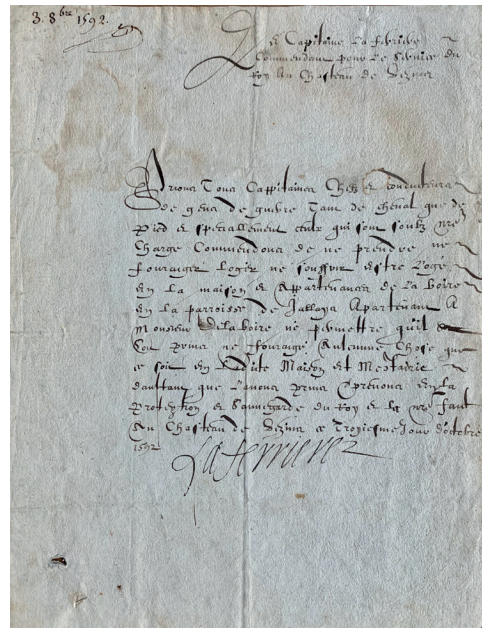 3. 8bre 1592.
Le Capitaine La ferriere
Commendant pour Le Service du
Roy Au Chasteau de Vezins
Prions Tous Cappitaines Chefz & conducteurs
de gens de guerre Tant de cheval que de
Pied & speciallement ceulx qui sont soubz nre
Charge Commendons de ne prendre ne
fourrager Loger ne souffrir estre Logé
En La maison & Appartenances de La boire
En La parroisse de Jallays Apartenant A
Monsieur delaboire ne permettre quil
soit prins ne fouragé Aulcune Chose que
ce soit En Ladite Maison Et Mestairie
daultant que Lavons prins & prenons En La
Protection & Sauvegarde du Roy & La nre faict
Au Chasteau de Vezins ce Troysiesme Jour d'octobre
1592
La ferriere